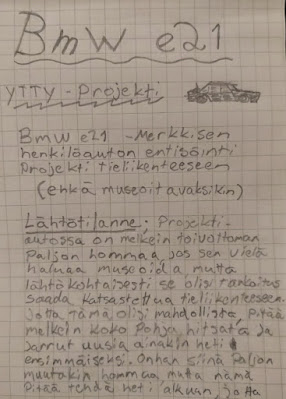 BMW e21
YTTY-Projekti
BMW e21 -Merkkisen
henkilöauton entisöinti
Projekti tieliikenteeseen
(ehkä museoitavaksikin)
Lähtötilanne; Projekti-
autossa on melkein toivottoman
Paljon hommaa, jos sen vielä
haluaa museoida mutta
lähtökohtaisesti se olisi tarkoitus
saada katsastettua tieliikenteeseen.
jotta tämä olisi mahdollista pitää
melkein koko Pohja hitsata ja
jarrut uusia ainakin heti
ensimmäiseksi. Onhan siinä Paljon
muutakin hommaa mutta nämä
Pitää tehdä heti alkuun, jotta